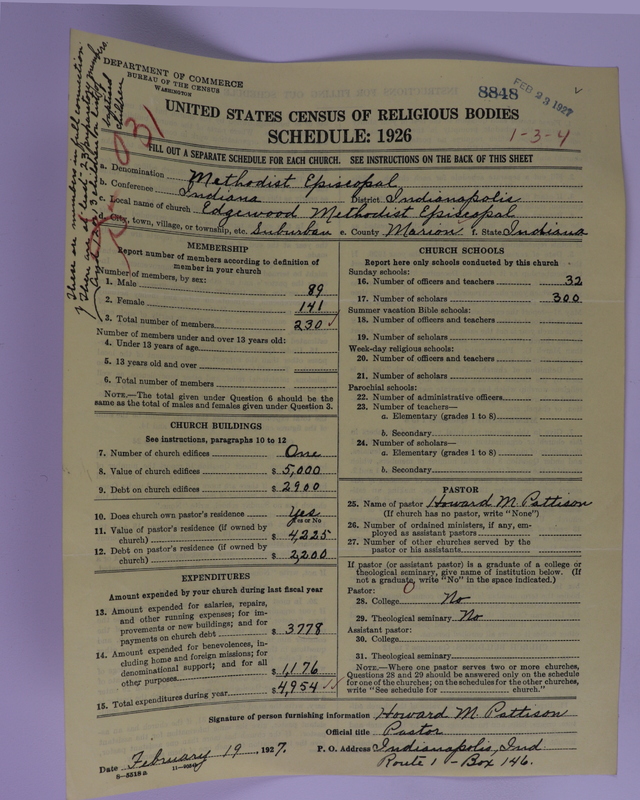 DEPARTMENT OF COMMERCE
BUREAU OF THE CENSUS
WASHINGTON
8848
FEB 23 1927
UNITED STATES CENSUS OF RELIGIOUS BODIES
SCHEDULE: 1926
1-3-4
031
FILL OUT A SEPARATE SCHEDULE FOR EACH CHURCH. SEE INSTRUCTIONS ON THE BACK OF THIS SHEET
These are members in full connection
There are at least 23 preparatory members
children
a. Denomination Methodist Episcopal
b. Conference Indiana District Indianapolis
c. Local name of church Edgewood Methodist Episcopal
City, town, village, or township, etc. Suburban e. County Marion f. State Indiana
MEMBERSHIP
Report number of members according to definition of
member in your church
Number of members, by sex:
1. Male 89
2. Female 141
3. Total number of members 230
Number of members under and over 13 years old:
4. Under 13 years of age
5. 13 years old and over
6. Total number of members
NOTE.—The total given under Question 6 should be
the same as the total of males and females given under Question 3.
CHURCH BUILDINGS
See instructions, paragraphs 10 to 12
7. Number of church edifices One
8. Value of church edifices $ 5,000
9. Debt on church edifices $ 2900
10. Does church own pastor's residence? Yes
Yes or No
11. Value of pastor's residence (if owned by
church) $ 4,225
12. Debt on pastor's residence (if owned by
church) $ 2,200
EXPENDITURES
Amount expended by your church during last fiscal year
13. Amount expended for salaries, repairs,
and other running expenses; for im-
provements or new buildings; and for
payments on church debt $ 3778
14. Amount expended for benevolences, in-
cluding home and foreign missions; for
denominational support; and for all
other purposes $ 1,176
15. Total expenditures during year $ 4,954
CHURCH SCHOOLS
Report here only schools conducted by this church
Sunday schools:
16. Number of officers and teachers 32
17. Number of scholars 300
Summer vacation Bible schools:
18. Number of officers and teachers
19. Number of scholars
Week-day religious schools:
20. Number of officers and teachers
21. Number of scholars
Parochial schools:
22. Number of administrative officers
23. Number of teachers—
a. Elementary (grades 1 to 8)
b. Secondary
24. Number of scholars—
a. Elementary (grades 1 to 8)
b. Secondary
PASTOR
25. Name of pastor Howard M. Pattison
(If church has no pastor, write "None")
26. Number of ordained ministers, if any, em-
ployed as assistant pastors
27. Number of other churches served by the
pastor or his assistants
If pastor (or assistant pastor) is a graduate of a college or
theological seminary, give name of institution below. (If
not a graduate, write "No" in the space indicated.)
Pastor:
28. College No
29. Theological seminary No
Assistant pastor:
30. College
31. Theological seminary
NOTE.—Where one pastor serves two or more churches,
Questions 28 and 29 should be answered only on the schedule
for one of the churches; on the schedules for the other churches,
write "See schedule for church."
Signature of person furnishing information Howard M. Pattison
Official title Pastor
Date February 19, 1927. P. O. Address Indianapolis, Ind
Route 1 - Box 146.
8-5518a